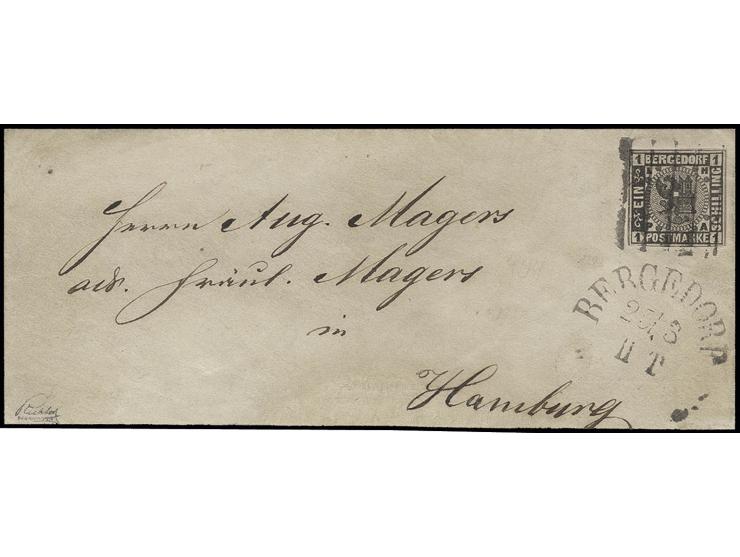 1 BERGEDORF 1
EIN
SCHILLING
L H
P A
1 POSTMARKE 1
Herrn Aug. Magers
adr. Fräul. Magers
in
Hamburg
BERGEDORF
25 8
II T